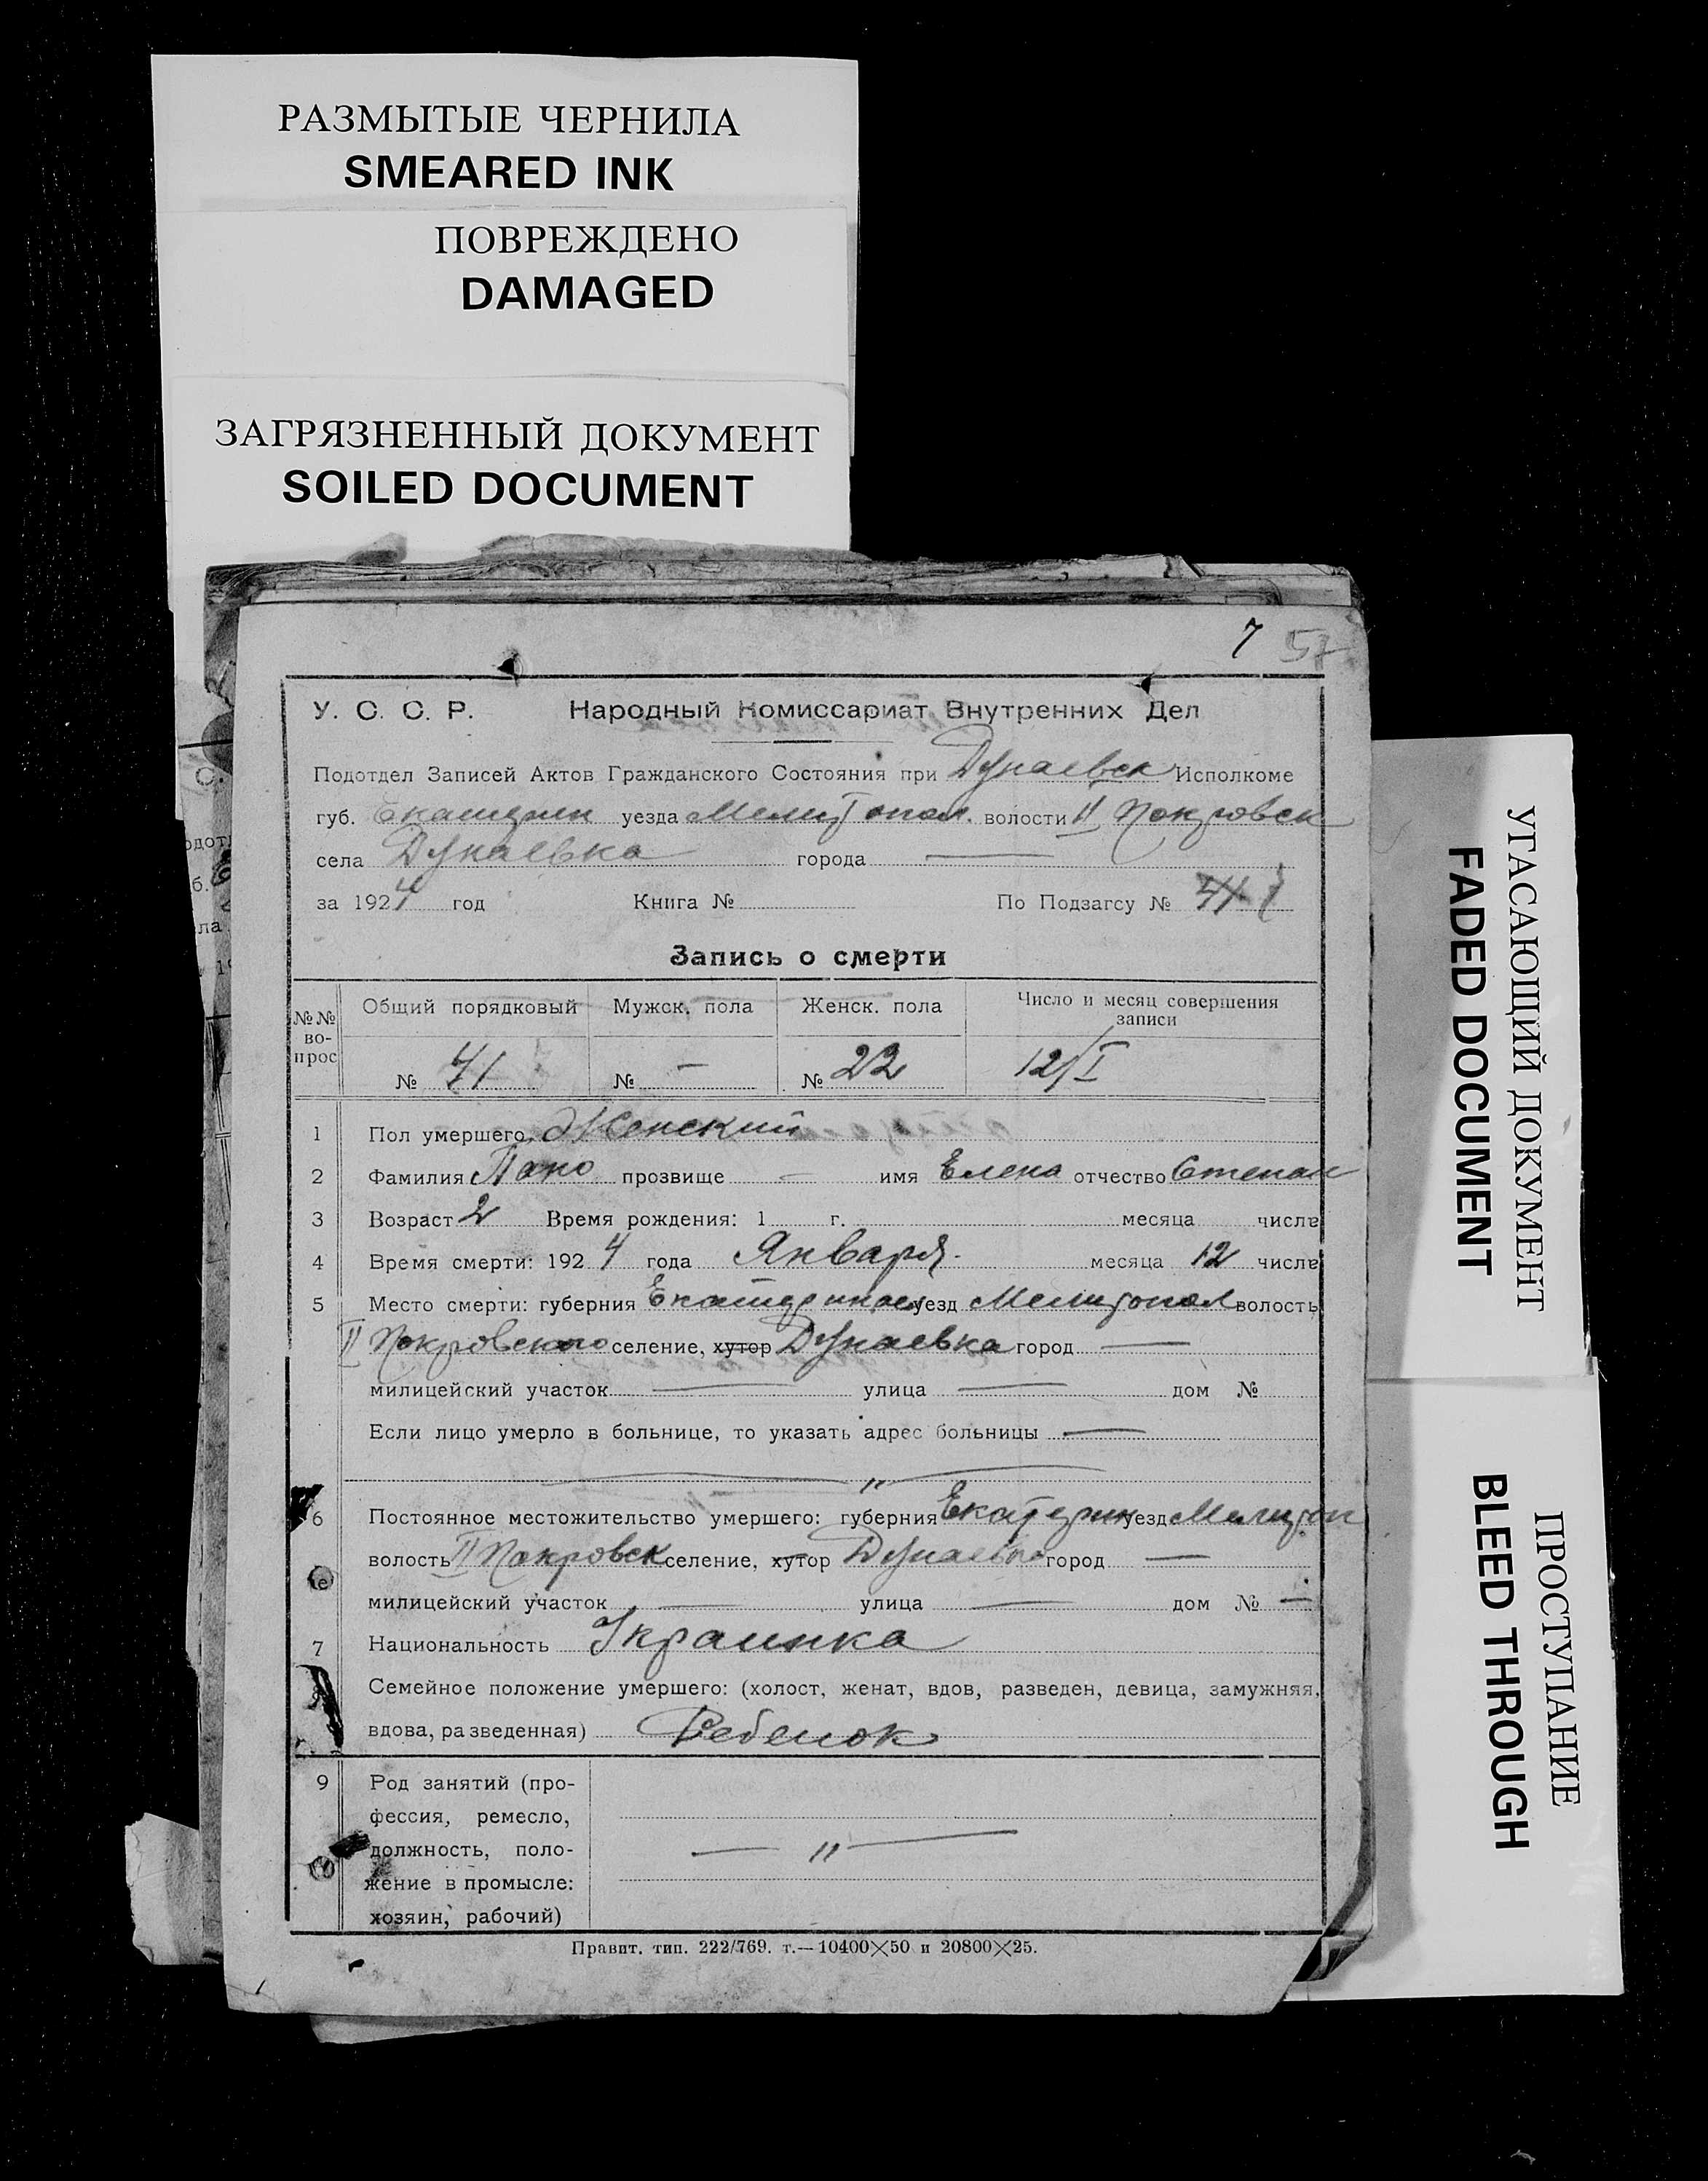 РАЗМЫТЫЕ ЧЕРНИЛА
SMEARED INK
ПОВРЕЖДЕНО
DAMAGED
ЗАГРЯЗНЕННЫЙ ДОКУМЕНТ
SOILED DOCUMENT
7 57
У. С. С. Р. Народный Комиссариат Внутренних Дел
Подотдел Записей Актов Гражданского Состояния при Дунаевск Исполкоме
губ. Екатерин уезда Мелитопол. волости II Покровск
села Дунаевка города —
за 1924 год Книга № По Подзагсу №
Запись о смерти
№№ во-прос Общий порядковый Мужск. пола Женск. пола Число и месяц совершения записи
№ 41 № — № 22 12/I
1 Пол умершего Женский
2 Фамилия Пахо прозвище — имя Елена отчество Степан
3 Возраст 2 Время рождения: 1 г. месяца числа
4 Время смерти: 1924 года Января месяца 12 числа
5 Место смерти: губерния Екатеринослуезд Мелитопол волость
II Покровского селение, хутор Дунаевка город —
милицейский участок — улица — дом №
Если лицо умерло в больнице, то указать адрес больницы —
— " —
6 Постоянное местожительство умершего: губерния Екатерин уезд Мелитоп
волость II Покровск селение, хутор Дунаевка город —
милицейский участок — улица — дом № —
7 Национальность Украинка
Семейное положение умершего: (холост, женат, вдов, разведен, девица, замужняя,
вдова, разведенная) Ребенок
9 Род занятий (про-
фессия, ремесло,
должность, поло- — " —
жение в промысле:
хозяин, рабочий)
Правит. тип. 222/769. т.—10400×50 и 20800×25.
УГАСАЮЩИЙ ДОКУМЕНТ
FADED DOCUMENT
ПРОСТУПАНИЕ
BLEED THROUGH